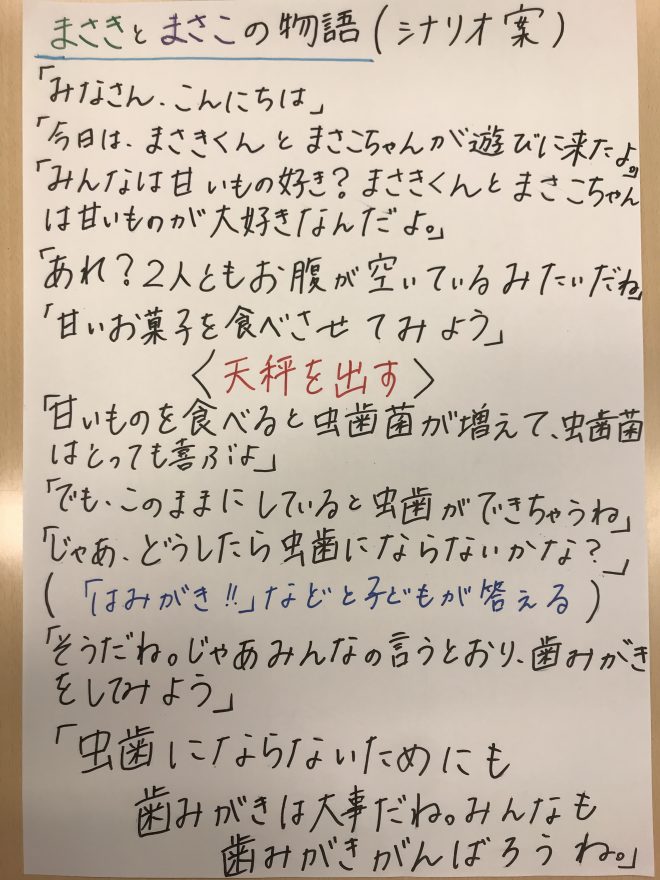 まさきとまさこの物語(シナリオ案)
「みなさん、こんにちは」
「今日は、まさきくんとまさこちゃんが遊びに来たよ。」
「みんなは甘いもの好き?まさきくんとまさこちゃん
は甘いものが大好きなんだよ。」
「あれ?2人ともお腹が空いているみたいだね」
「甘いお菓子を食べさせてみよう」
〈天秤を出す〉
「甘いものを食べると虫歯菌が増えて、虫歯菌
はとっても喜ぶよ」
「でも、このままにしていると虫歯ができちゃうね」
「じゃあ、どうしたら虫歯にならないかな?」
(「はみがき!!」などと子どもが答える)
「そうだね。じゃあみんなの言うとおり、歯みがき
をしてみよう」
「虫歯にならないためにも
歯みがきは大事だね。みんなも
歯みがきがんばろうね。」